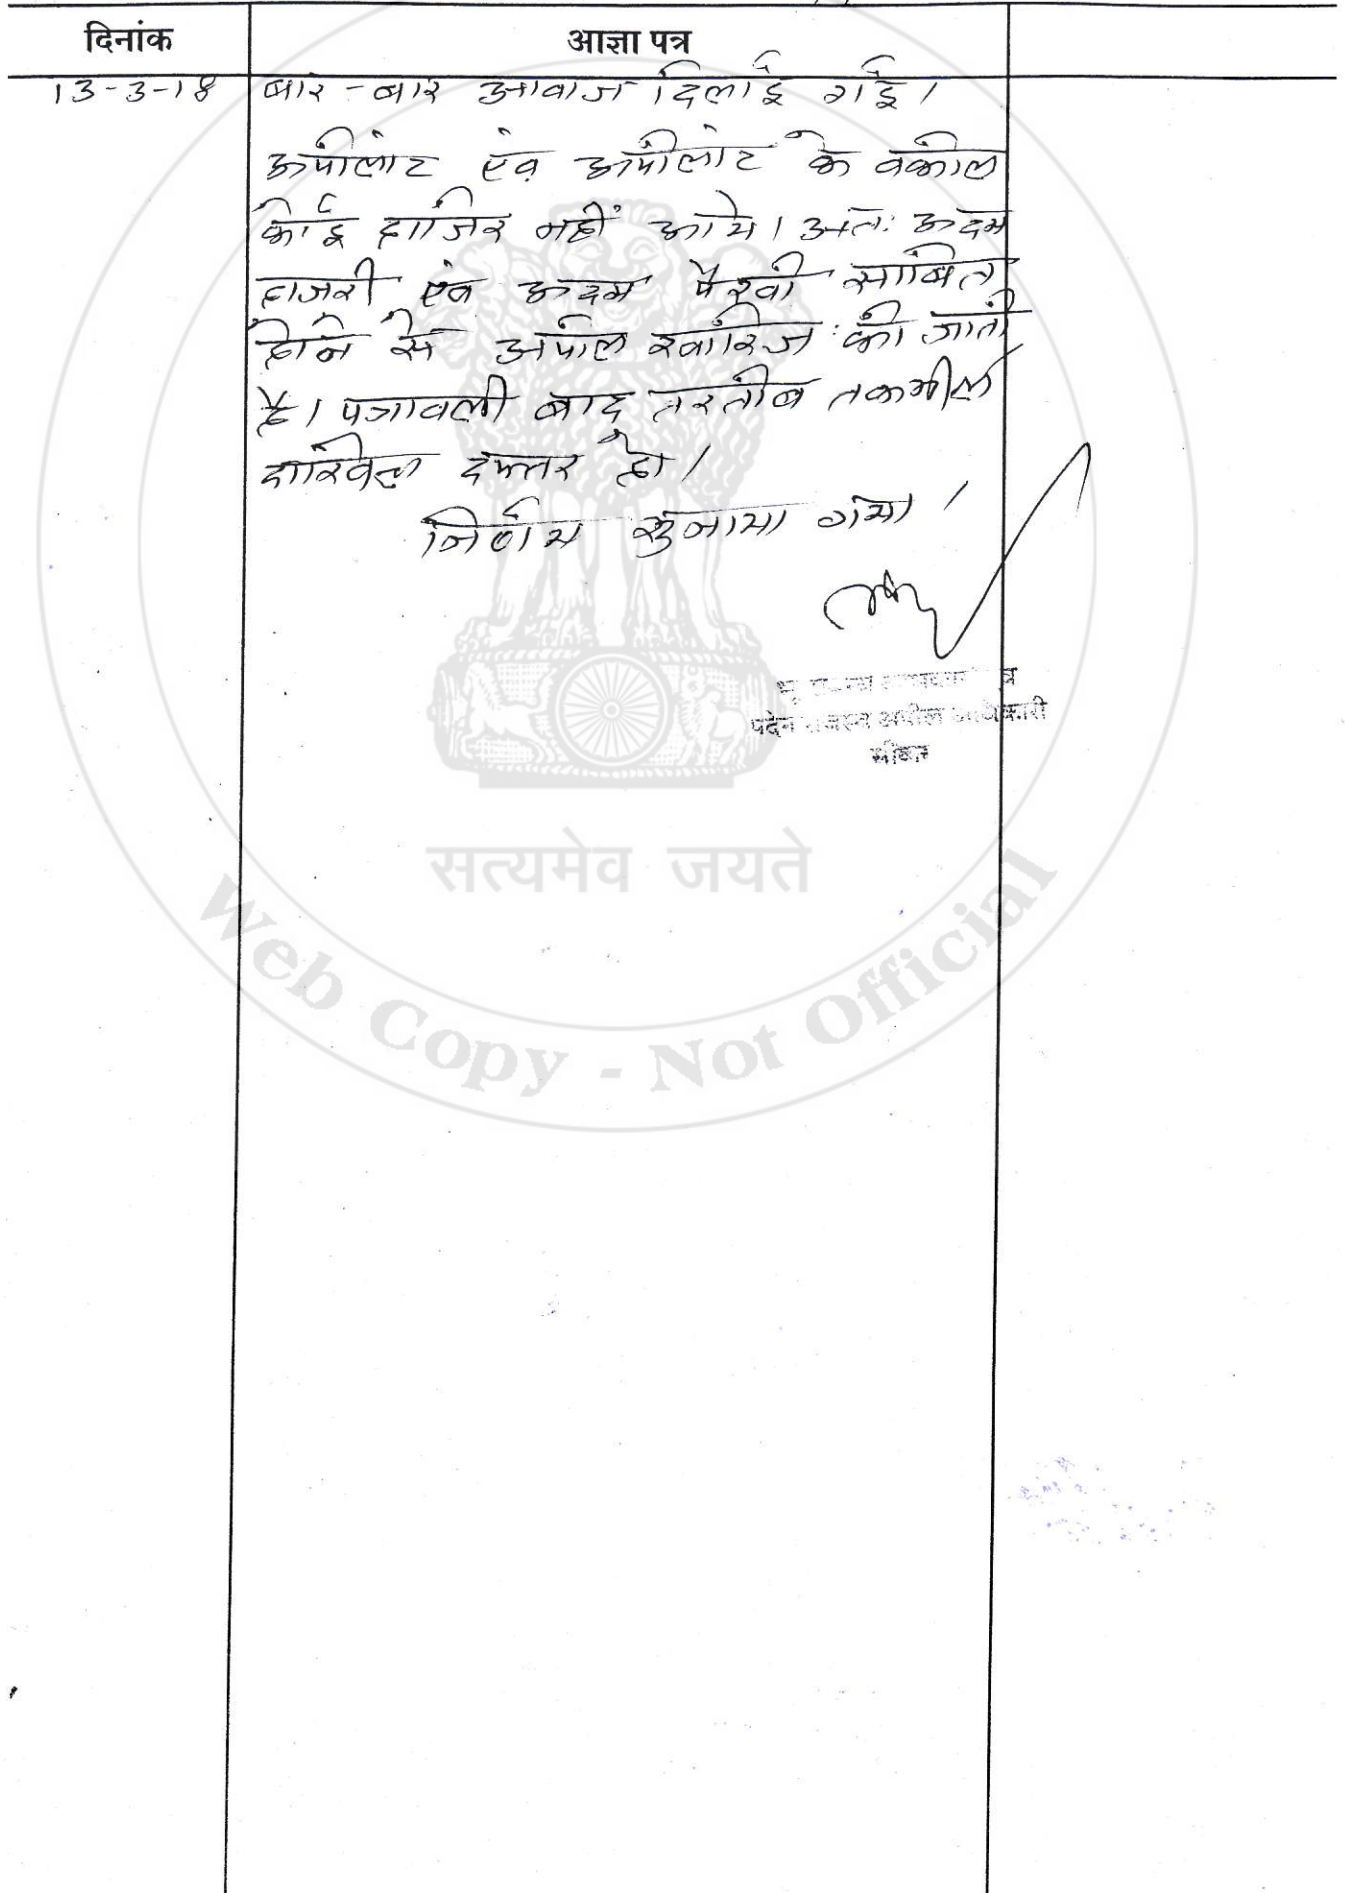 दिनांक आज्ञा पत्र
13-3-18 बार-बार आवाज दिलाई गई।
अपीलांट एंव अपीलांट के वकील
कोई हाजिर नहीं आये। अतः अदम
हाजरी एंव अदम पैरवी साबित
होने से अपील खारिज की जाती
है। पत्रावली बाद तरतीब तकमील
दाखिल दफ्तर हो।
निर्णय सुनाया गया।
पदेन राजस्व अपील अधिकारी
सीकर
सत्यमेव जयते
Web Copy - Not Official